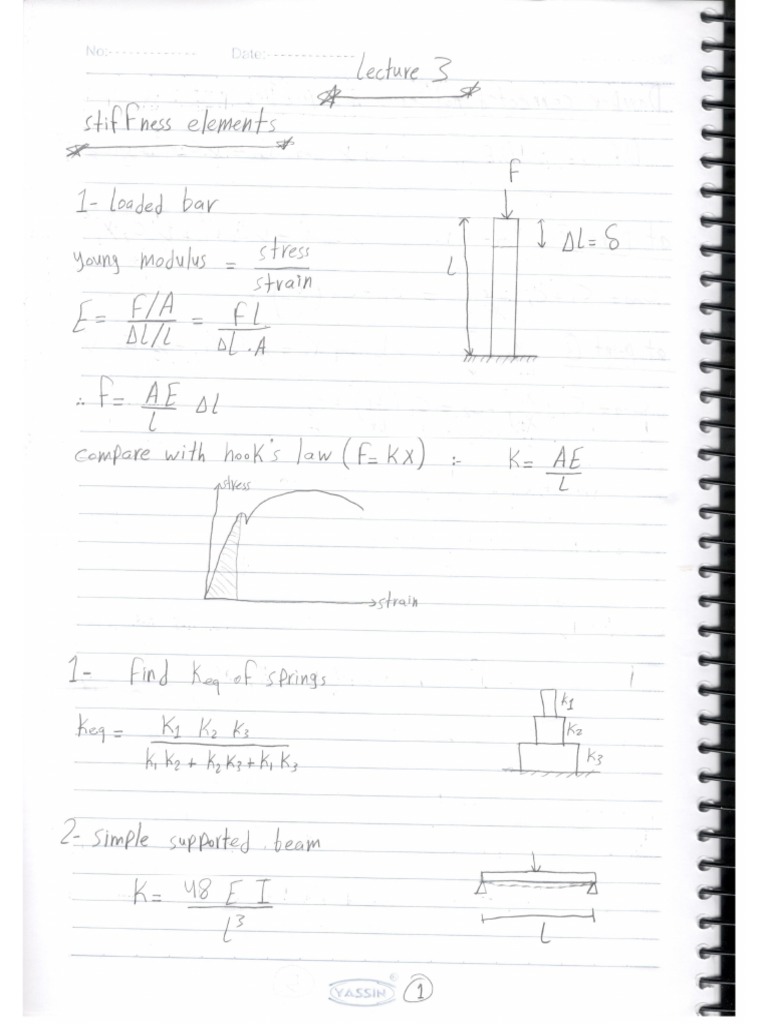 No:-------------- Date:--------------
Lecture 3
stiffness elements
1- loaded bar
young modulus = stress / strain
E = F/A / ΔL/L = FL / ΔL . A
∴ F = AE / L ΔL
compare with hook's law (F = KX) :- K = AE / L
F
L
ΔL = δ
stress
strain
1- Find Keq of springs
Keq = K1 K2 K3 / K1 K2 + K2 K3 + K1 K3
k1
k2
k3
2- simple supported beam
K = 48 E I / L³
L
YASSIN
1